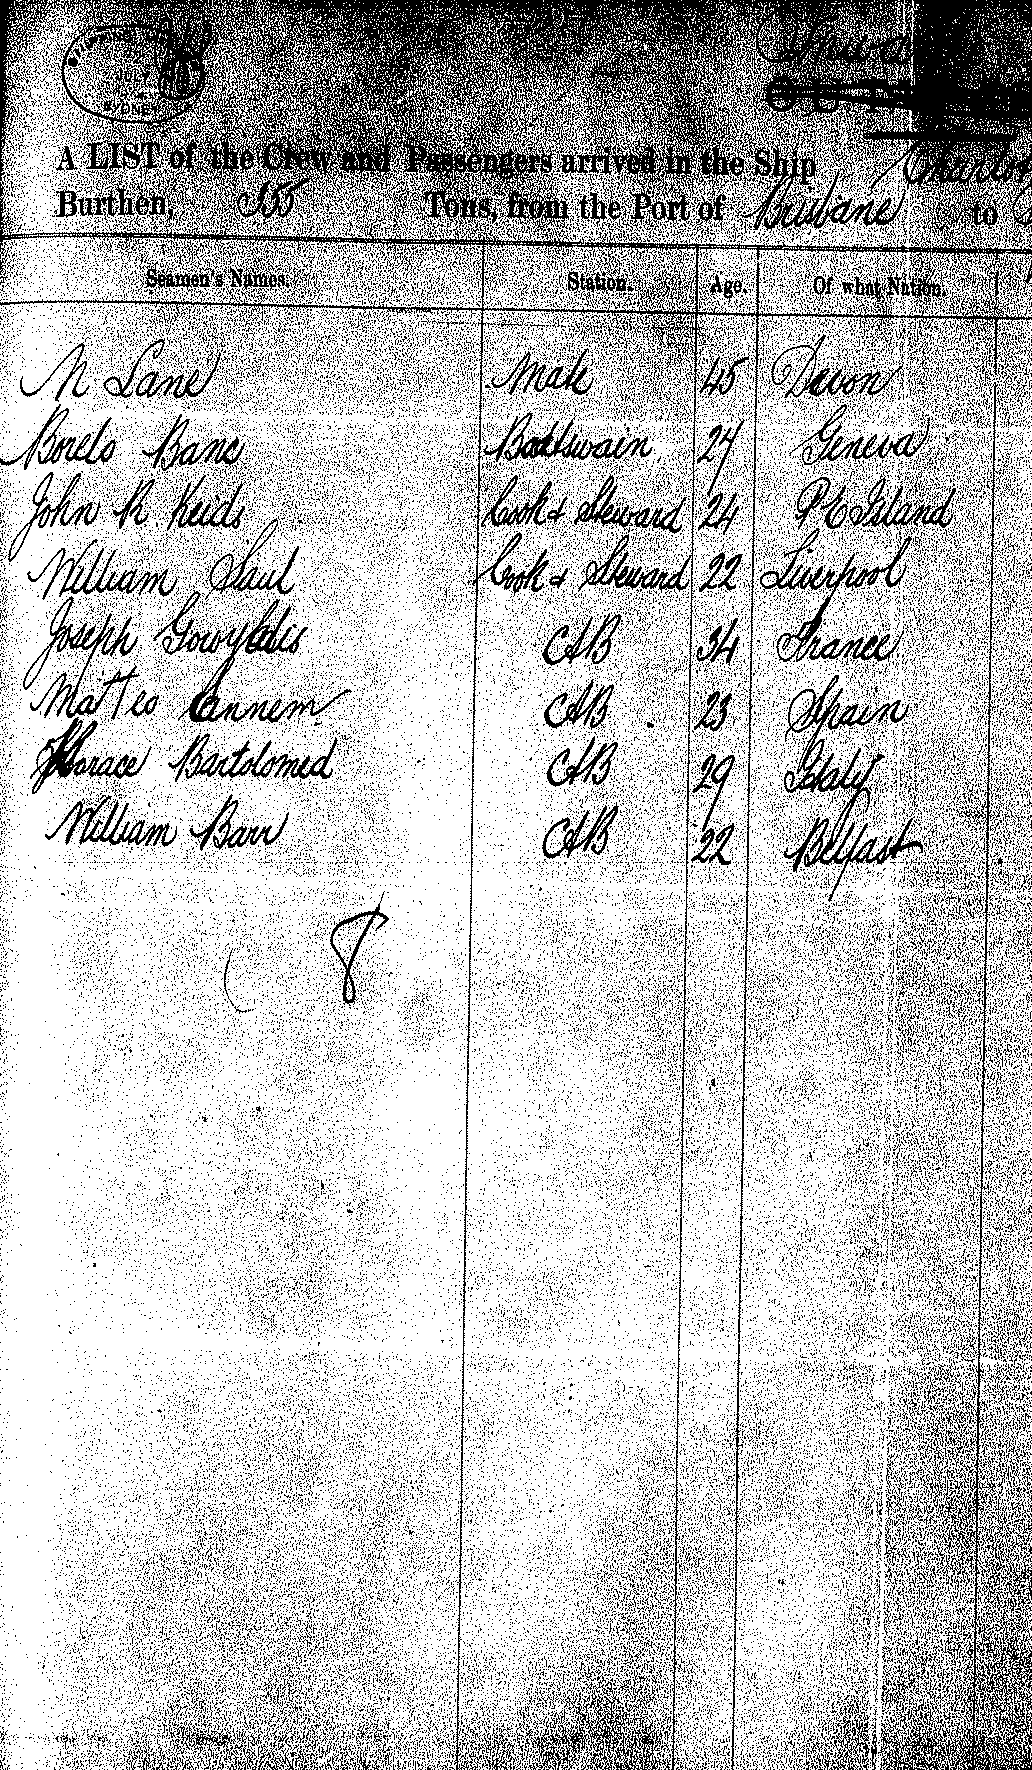 JULY
SYDNEY
A LIST of the Crew and Passengers arrived in the Ship
Burthen, 355 Tons, from the Port of Brisbane to
Seamen's Names. Station. Age. Of what Nation.
M Lane Mate 45 Devon
Borels Banc Boatswain 24 Geneva
John R Keids Cook & Steward 24 P E Island
William Saul Cook & Steward 22 Liverpool
Joseph AB 34 France
Matteo AB 23 Spain
Horace Bartolomed AB 29 Italy
William Barr AB 22 Belfast
8